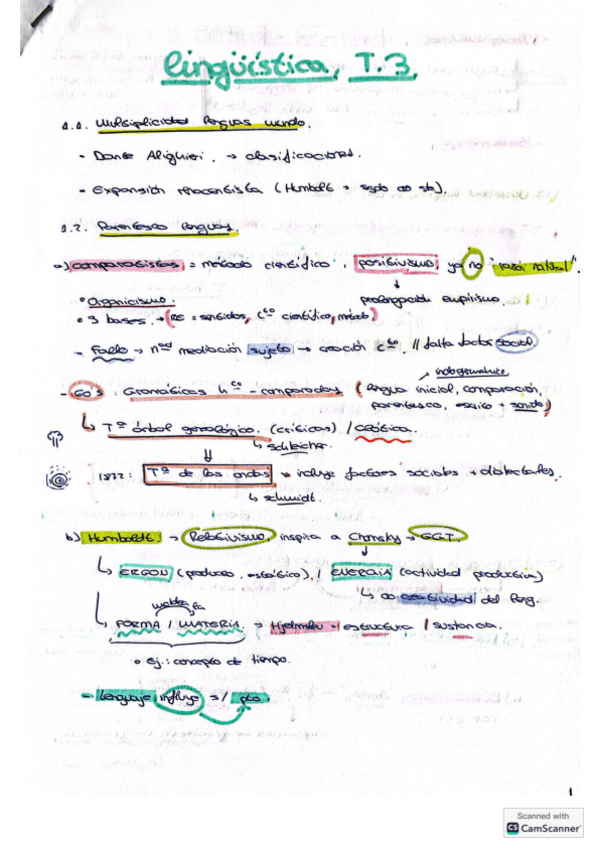 Lingüística, T.3.
1.1. Multiplicidad lenguas mundo.
- Dante Aligieri. → clasificaciones.
- Expansión renacentista (Humboldt →
1.2. Parentesco lenguas.
a) comparatistas = método científico, positivismo, ya no "razón natural".
• Organicismo. empirismo.
• 3 bases. → (RE = sentidos, cto científico, método)
- Fallo → nºº mediación sujeto → creación cto. // falta factor social
indogermánica
- 60's: Gramáticas hcas-comparadas (lengua inicial, comparación,
parentesco, escrito + sonido)
↳ Tª árbol genealógico. (críticas) / Gótica.
↳ Schleicher
1872: Tª de las ondas → incluye factores sociales + dialectales.
↳ Schmidt.
b) Humboldt. → Relativismo, inspira a Chomsky → GGT.
↳ ERGON (producto, estático) / ENERGIA (actividad productiva)
↳ creatividad del leng.
moldea la
↳ FORMA / MATERIA. → Hjelmslev = estructura / sustancia.
• ej.: concepto de tiempo.
- Lenguaje influye s/ pto
1
Scanned with
CS CamScanner